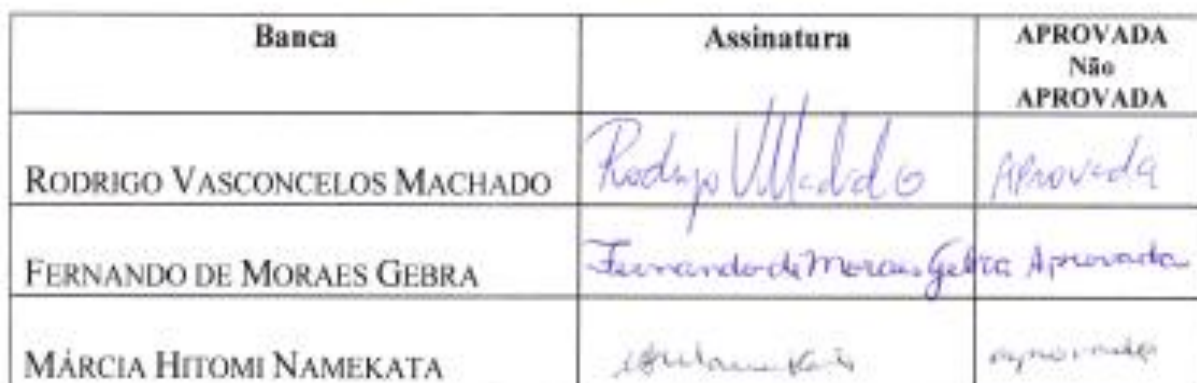 Banca Assinatura APROVADA
Não
APROVADA
RODRIGO VASCONCELOS MACHADO Rodrigo Aprovada
FERNANDO DE MORAES GEBRA Fernando de Moraes Gebra Aprovada
MÁRCIA HITOMI NAMEKATA aprovada